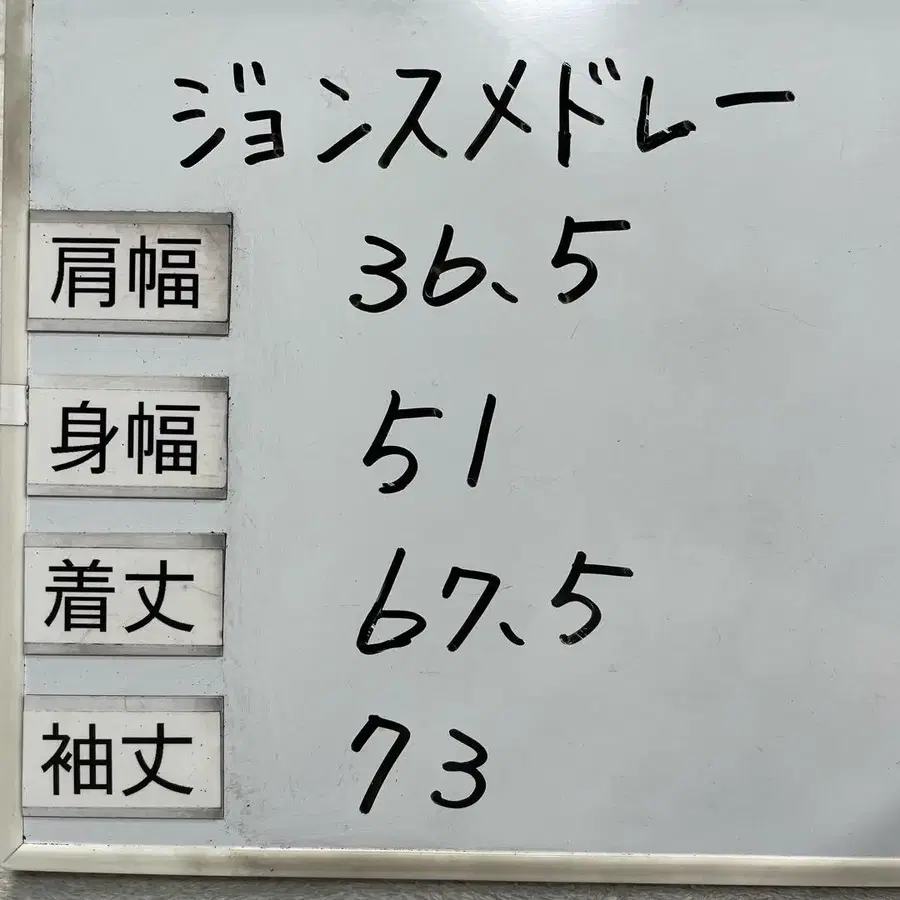 ジョンスメドレー
肩幅 36.5
身幅 51
着丈 67.5
袖丈 73